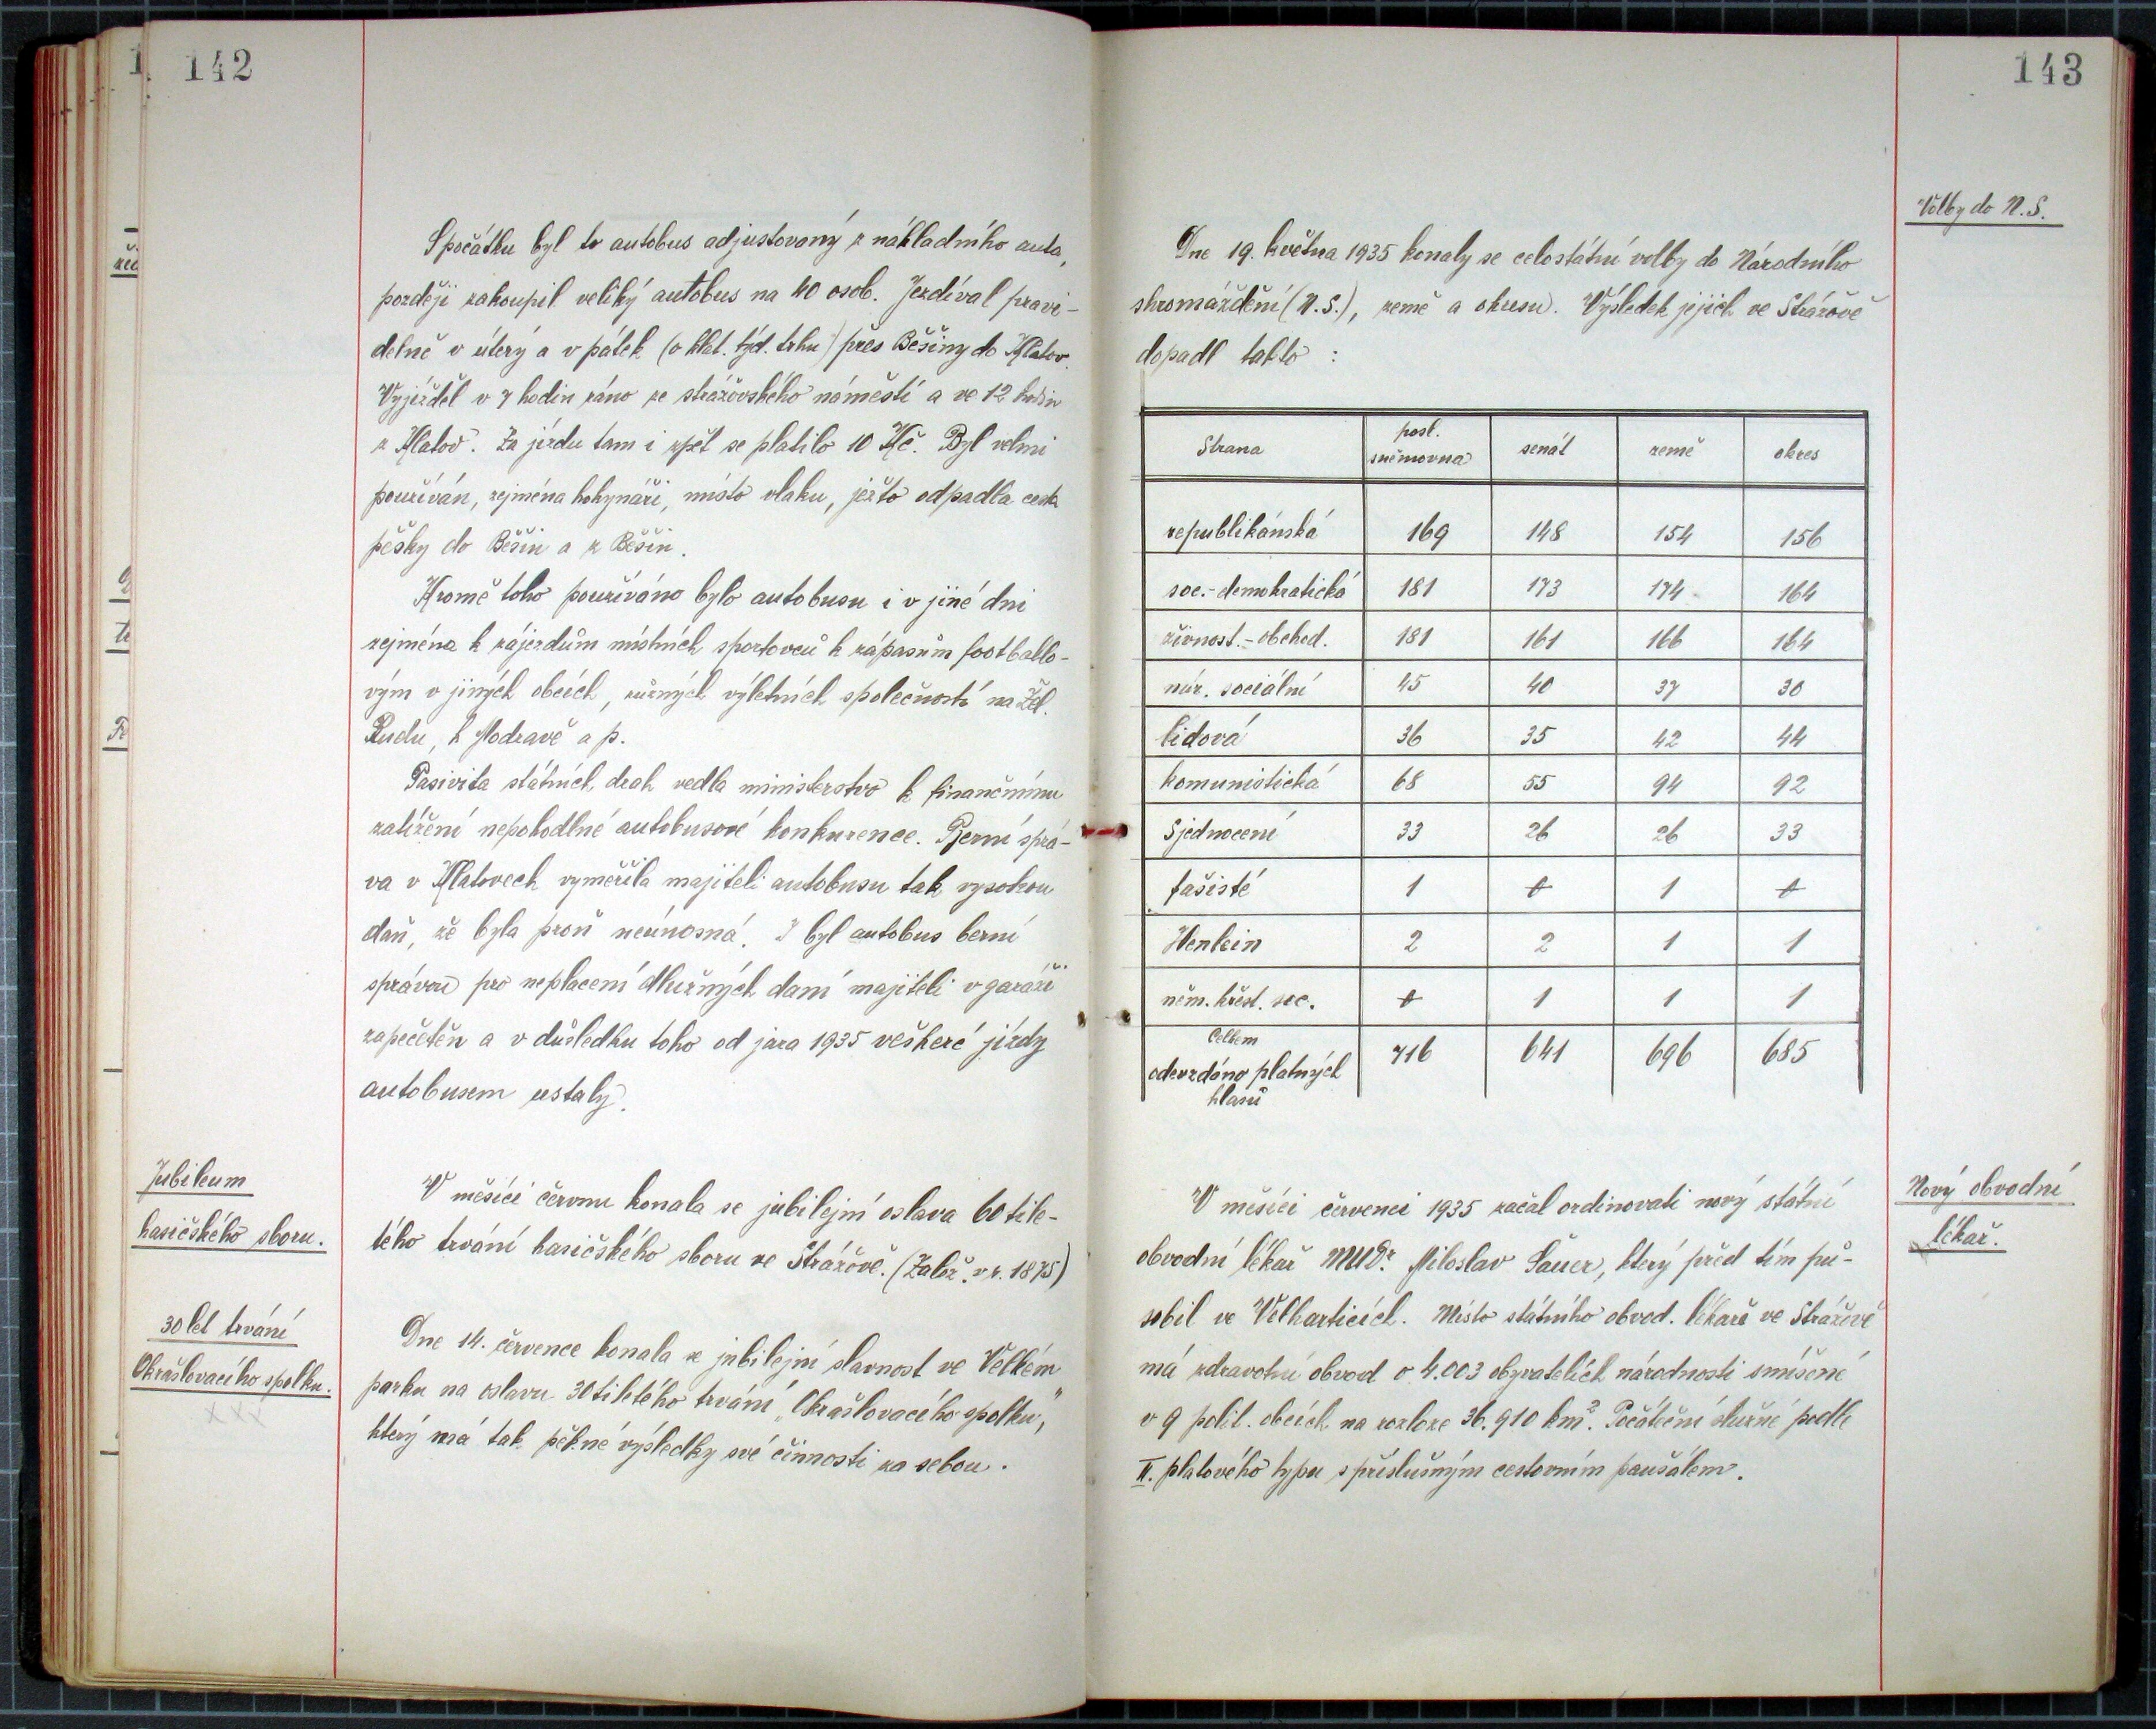 142
Spočátku byl to autobus adjustovaný z nákladního auta,
později zakoupil veliký autobus na 40 osob. Jezdíval pravi-
delně v úterý a v pátek (o klat. týd. trhu) přes Běšiny do Klatov.
Vyjížděl v 7 hodin ráno ze strážovského náměstí a ve 12 hodin
z Klatov. Za jízdu tam i zpět se platilo 10 Kč. Byl velmi
používán, zejména hokynáři, místo vlaku, ježto odpadla cesta
pěšky do Běšin a z Běšin.
Kromě toho používáno bylo autobusu i v jiné dni
zejména k zájezdům místních sportovců k zápasům footballo-
vým v jiných obcích, různých výletních společností na Žel.
Rudu, k Modravě a p.
Pasivita státních drah vedla ministerstvo k finančnímu
zatížení nepohodlné autobusové konkurence. Berní sprá-
va v Klatovech vyměřila majiteli autobusu tak vysokou
daň, že byla proň neúnosná. I byl autobus berní
správou pro neplacení dlužných daní majiteli v garáži
zapečetěn a v důsledku toho od jara 1935 veškeré jízdy
autobusem ustaly.
Jubileum
hasičského sboru.
V měsíci červnu konala se jubilejní oslava 60 tile-
tého trvání hasičského sboru ve Strážově. (Založ. v r. 1875)
30 let trvání
Okrašlovacího spolku.
xxx
Dne 14. července konala se jubilejní slavnost ve Velkém
parku na oslavu 30tiletého trvání „Okrašlovacího spolku",
který má tak pěkné výsledky své činnosti za sebou.
143
Volby do N.S.
Dne 19. května 1935 konaly se celostátní volby do Národního
shromáždění (N.S.), země a okresu. Výsledek jejich ve Strážově
dopadl takto :
Strana posl. sněmovna senát země okres
republikánská 169 148 154 156
soc.-demokratická 181 173 174 164
živnost.-obchod. 181 161 166 164
nár. sociální 45 40 37 30
lidová 36 35 42 44
komunistická 68 55 94 92
Sjednocení 33 26 26 33
fašisté 1 0 1 0
Henlein 2 2 1 1
něm. křest. soc. 0 1 1 1
Celkem
odevzdáno platných 716 641 696 685
hlasů
Nový obvodní
lékař.
V měsíci červenci 1935 začal ordinovati nový státní
obvodní lékař MUDr. Miloslav Sauer, který před tím pů-
sobil ve Velharticích. Místo státního obvod. lékaře ve Strážově
má zdravotní obvod o 4.003 obyvatelích národnosti smíšené
v 9 polit. obcích na rozloze 36.910 km². Počáteční služné podle
II. platového typu s příslušným cestovním paušálem.